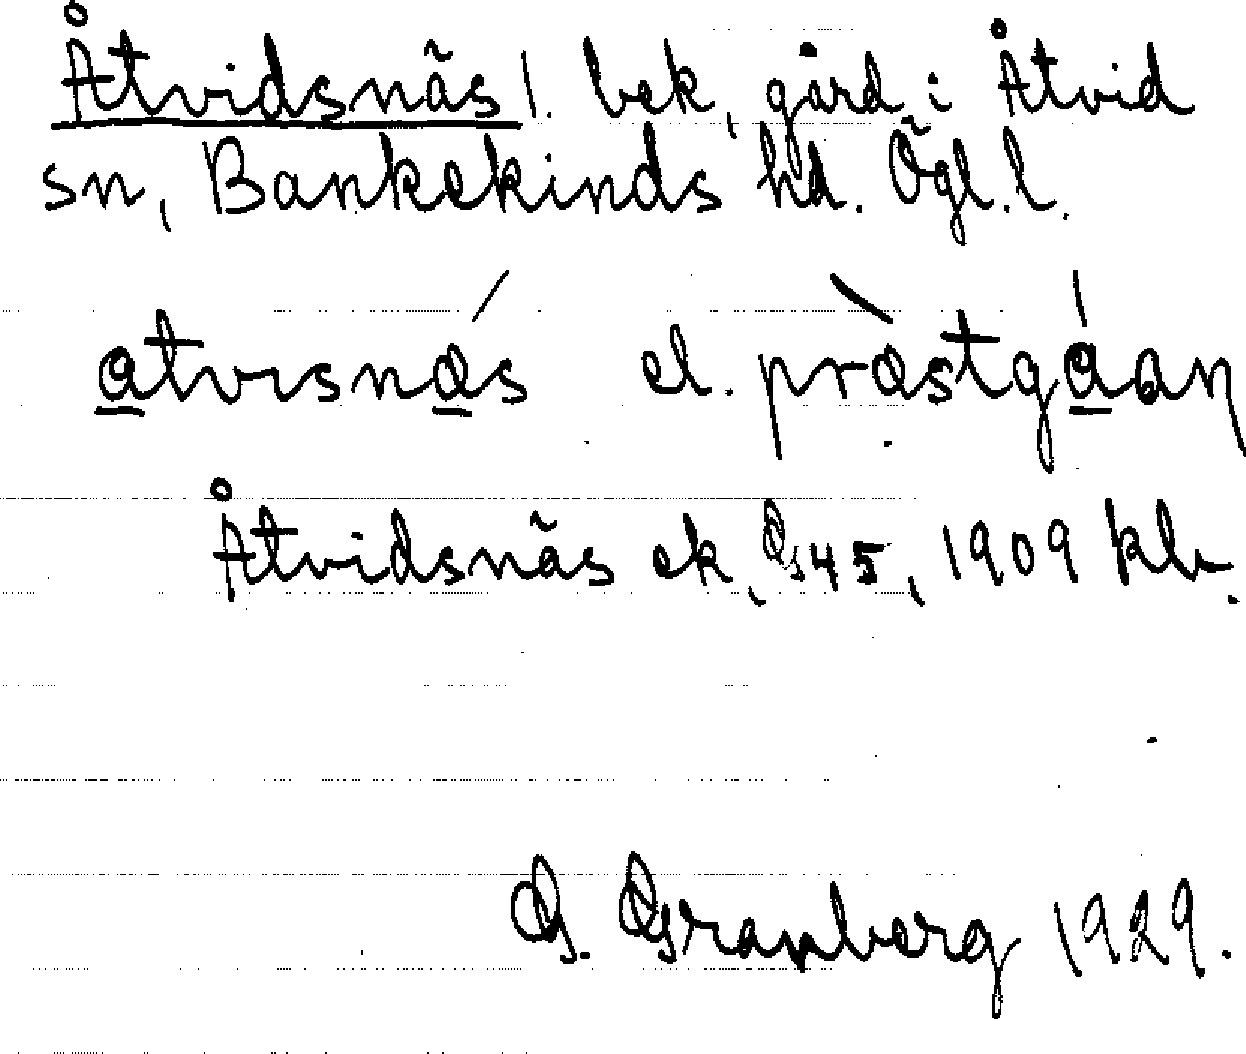 Åtvidsnäs l. bek, gård i Åtvid
sn, Bankekinds hd. Ögl. l.
atvısnás el. pràstgáan
Åtvidsnäs ek, GS 45, 1909 klv.
G. Granberg 1929.